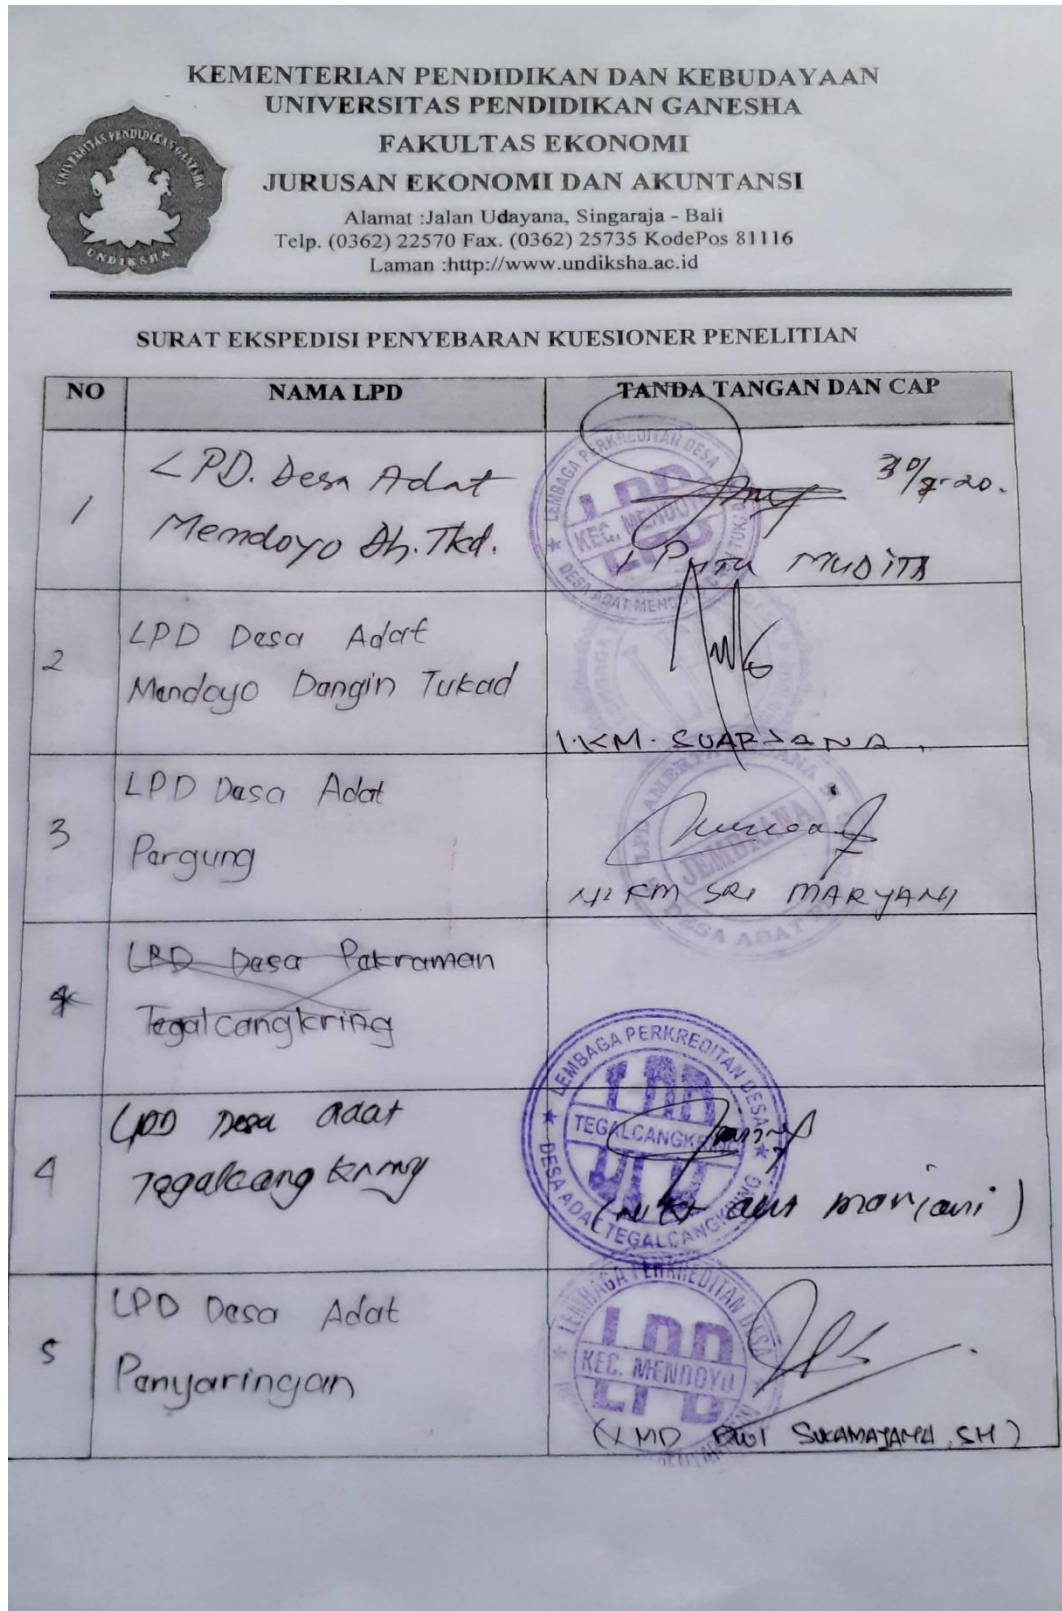 KEMENTERIAN PENDIDIKAN DAN KEBUDAYAAN
UNIVERSITAS PENDIDIKAN GANESHA
FAKULTAS EKONOMI
JURUSAN EKONOMI DAN AKUNTANSI
Alamat :Jalan Udayana, Singaraja - Bali
Telp. (0362) 22570 Fax. (0362) 25735 KodePos 81116
Laman :http://www.undiksha.ac.id
UNIVERSITAS PENDIDIKAN GANESHA
UNDIKSHA
SURAT EKSPEDISI PENYEBARAN KUESIONER PENELITIAN
NO NAMA LPD TANDA TANGAN DAN CAP
1 LPD. Desa Adat
Mendoyo Dh. Tkd.
LEMBAGA PERKREDITAN DESA
LPD
KEC. MENDOYO
DESA ADAT
I PUTU MUDITA
2 LPD Desa Adat
Mendoyo Dangin Tukad
I. KM. SUARJANA.
3 LPD Desa Adat
Pergung
JEMBRANA
DESA ADAT
NI KM SRI MARYANI
LPD Desa Pakraman
Tegalcangkring
4 LPD Desa adat
Tegalcangkring
LEMBAGA PERKREDITAN DESA
LPD
TEGALCANGKRING
DESA ADAT TEGALCANGKRING
mariani)
5 LPD Desa Adat
Penyaringan
LEMBAGA PERKREDITAN DESA
LPD
KEC. MENDOYO
LPD
(I MD DWI SUKAMAJAYA, SH)